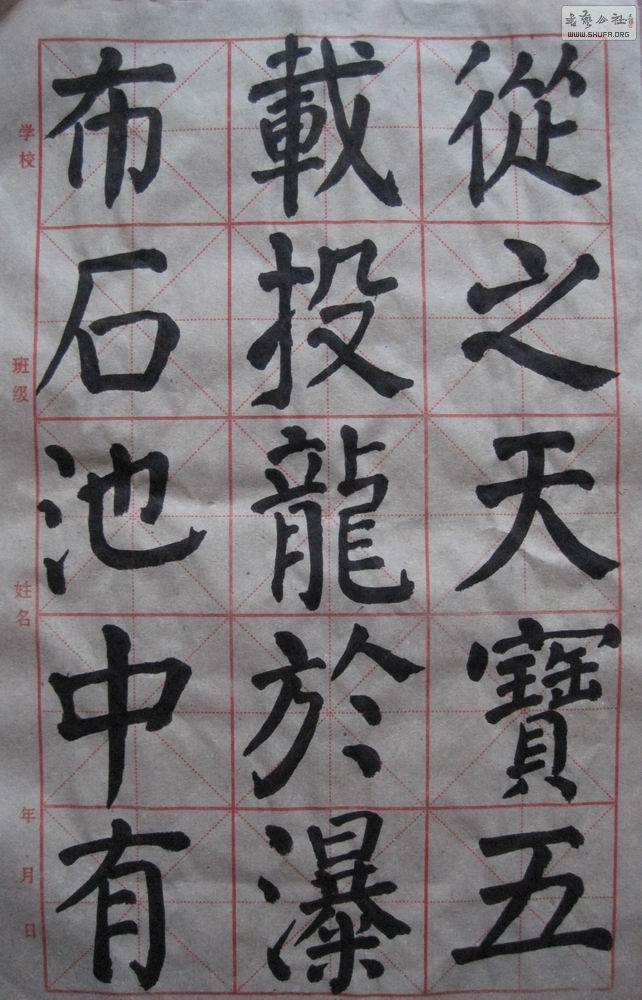 從之天寶五
載投龍於瀑
布石池中有
学校
班级
姓名
年月日
WWW.SHUFA.ORG